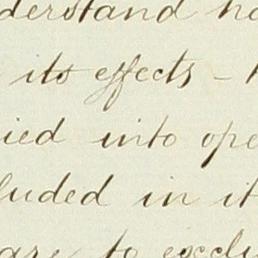 derstand ho
its effects –
ied into ope
luded in it
are to exclu